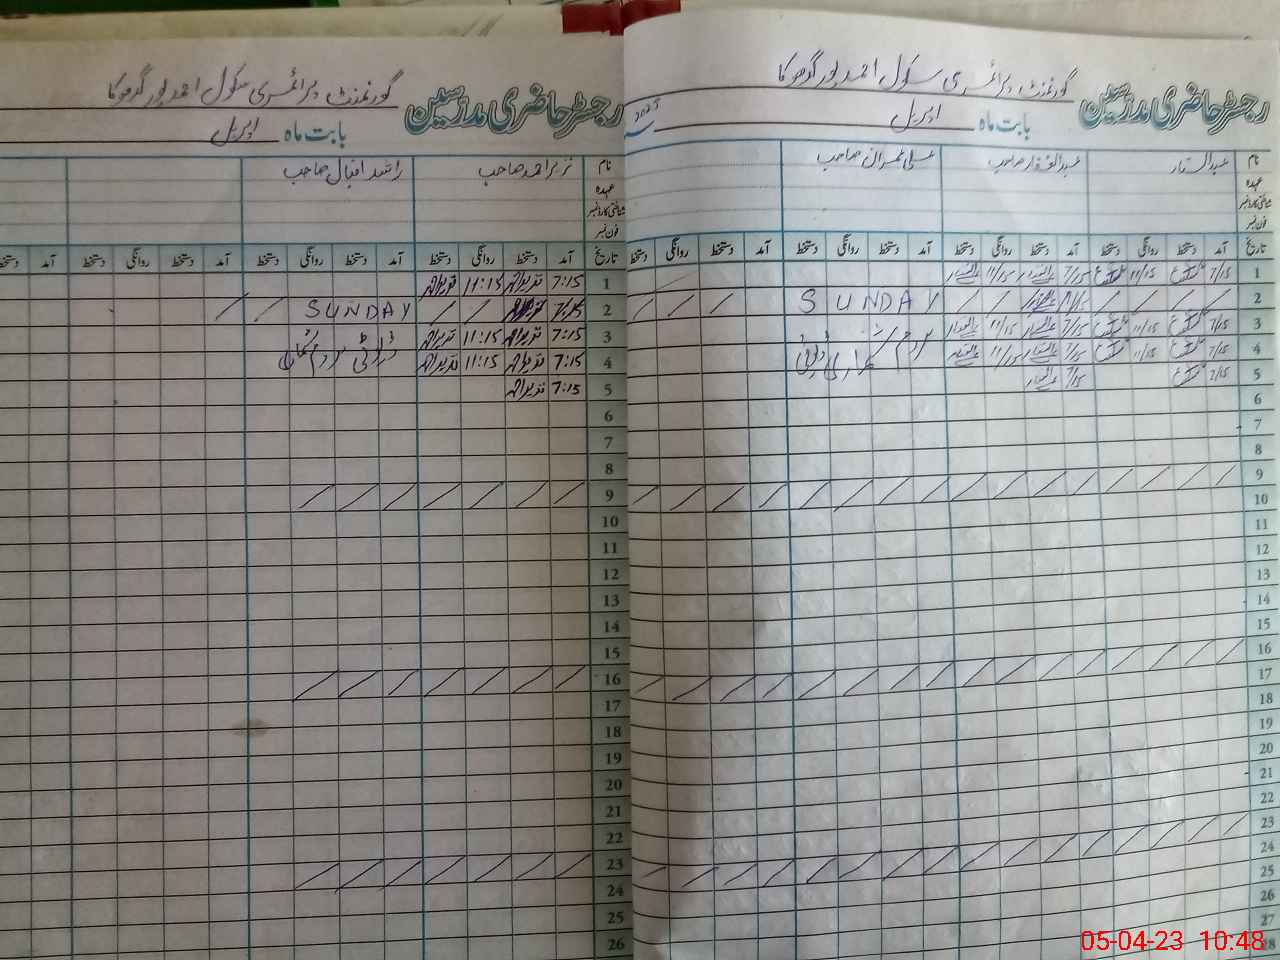 رجسٹر حاضری مدرسین گورنمنٹ پرائمری سکول احمد پور
بابت ماہ اپریل
نام عبدالستار عبدالغفار صاحب علی عمران صاحب
عہدہ
شناختی کارڈ نمبر
فون نمبر
تاریخ آمد دستخط روانگی دستخط آمد دستخط روانگی دستخط آمد دستخط روانگی دستخط آمد دستخط روانگی دستخط
1 7/15 11/15 7/15 11/15
2 SUNDAY
3 7/15 11/15 7/15 11/15
4 7/15 11/15 7/15 11/15
5 7/15 7/15
6
7
8
9
10
11
12
13
14
15
16
17
18
19
20
21
22
23
24
25
26
27
28
رجسٹر حاضری مدرسین گورنمنٹ پرائمری سکول احمد پور
بابت ماہ اپریل
نام نذیر احمد صاحب راشد اقبال صاحب
عہدہ
شناختی کارڈ نمبر
فون نمبر
تاریخ آمد دستخط روانگی دستخط آمد دستخط روانگی دستخط آمد دستخط روانگی دستخط آمد دستخط
1 7:15 نذیر احمد 11:15 نذیر احمد
2 7:15 SUNDAY
3 7:15 نذیر احمد 11:15 نذیر احمد
4 7:15 نذیر احمد 11:15 نذیر احمد
5 7:15 نذیر احمد
6
7
8
9
10
11
12
13
14
15
16
17
18
19
20
21
22
23
24
25
26
05-04-23 10:48